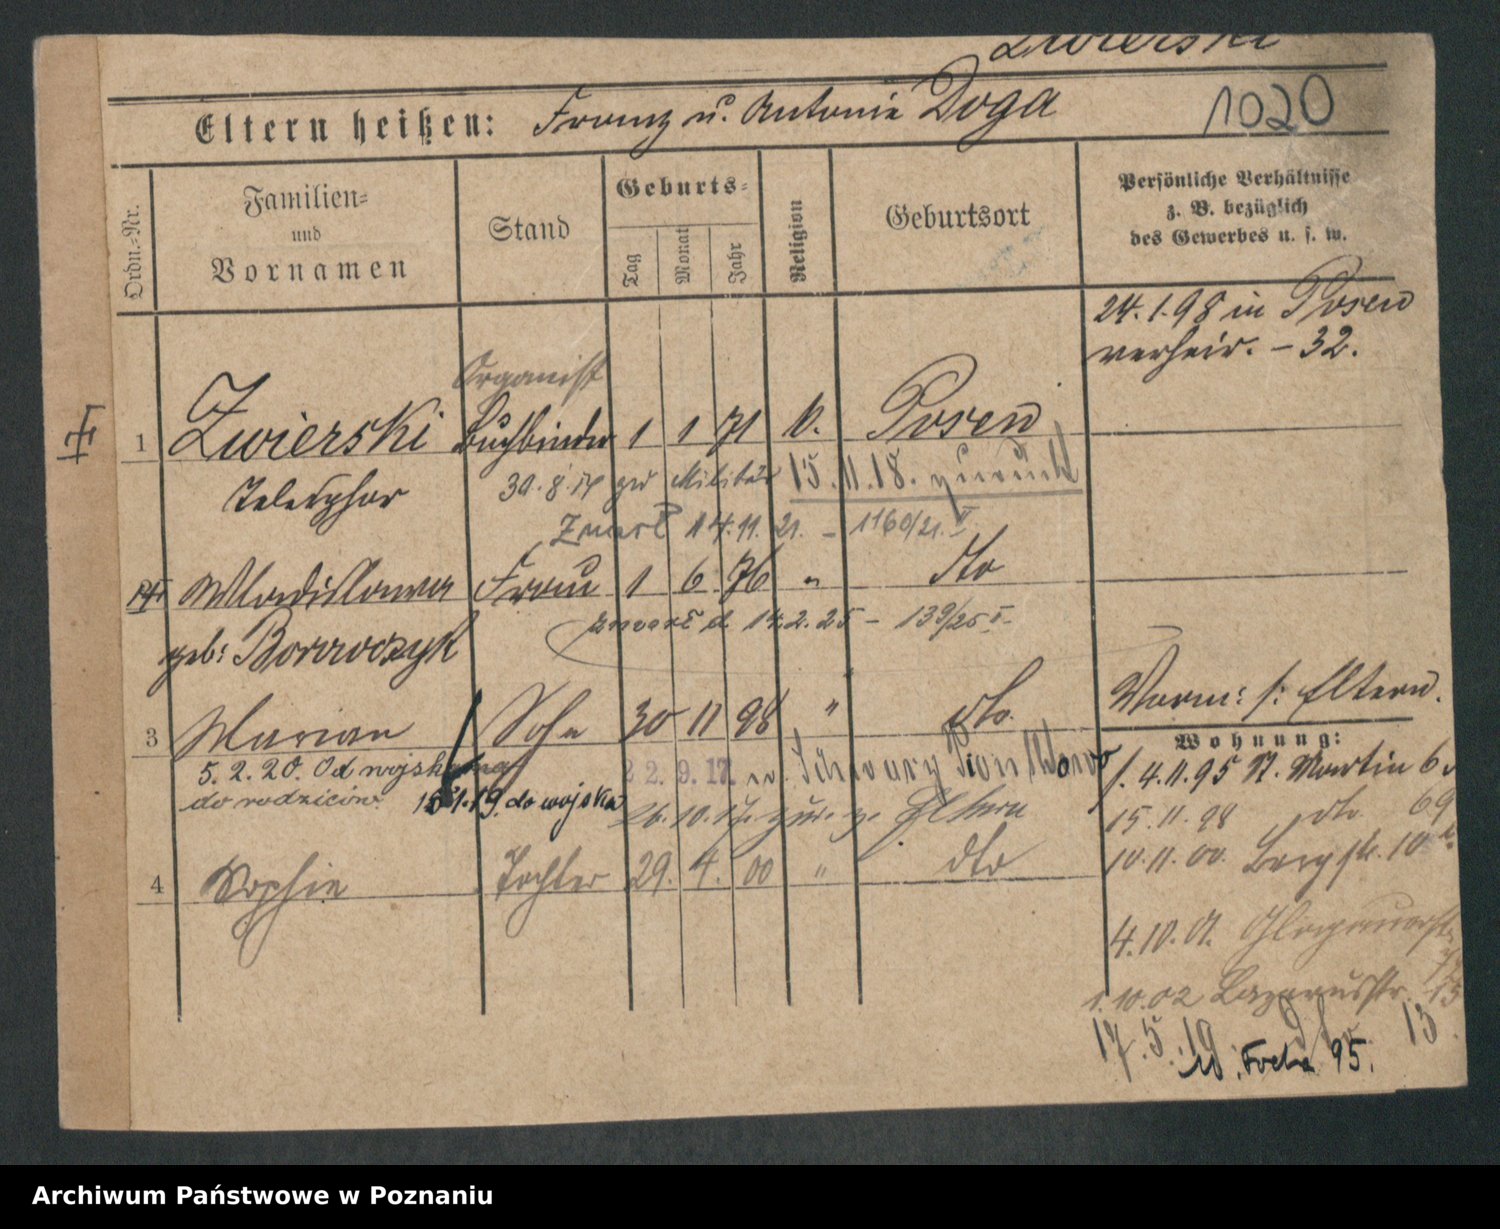 Zwierski
Eltern heißen: Franz u. Antonie Doga
1020
Ordn.=Nr.
Familien=
und
Vornamen
Stand
Geburts=
Tag
Monat
Jahr
Religion
Geburtsort
Persönliche Verhältnisse
z. B. bezüglich
des Gewerbes u. s. w.
24.1.98 in Posen
verheir. - 32.
Organist
1 Zwierski Buchbinder 1 1 71 k. Posen
Telesphor
30.8.17 zum Militär 15.11.18. zurück
Zmarł 14.11.21. - 1160/21.
Wladislawa Frau 1 6 76 " dto
zmarł d. 14.2.25 - 139/25 I.
geb: Borowczyk
3 Marian Sohn 30 11 98 " dto.
5.2.20. Od wojska
do rodziców. 15.1.19. do wojska
22.9.17. n.
26.10.17. zur. z. Eltern
4 Sophie Tochter 29. 4. 00 " dto
Vorm: s: Eltern.
Wohnung:
f. 4.11.95 St. Martin 6
15.11.98 dto 69
10.11.00. Bergstr. 10
4.10.01. Glogauerstr.
1.10.02 Lazarusstr. 13
17.5.19. dto. 13
M. Focha 95.
Archiwum Państwowe w Poznaniu